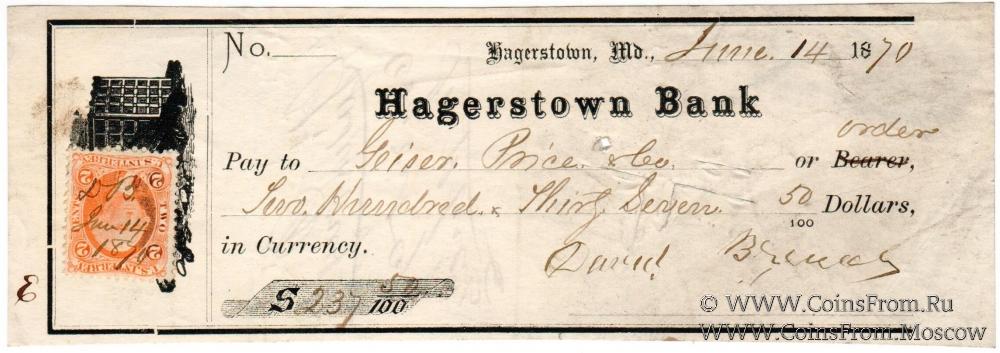 No.
Hagerstown, Md., June. 14 1870
Hagerstown Bank
order
Pay to Geiser. Price. & Co. or Bearer,
Two. Hundred. & Thirty Seven. 50/100 Dollars,
in Currency.
David
$ 237 50/100
U.S. INTER. REV.
2 2
TWO
D B.
June 14
1870
2 2
E
© WWW.CoinsFrom.Ru
WWW.CoinsFrom.Moscow